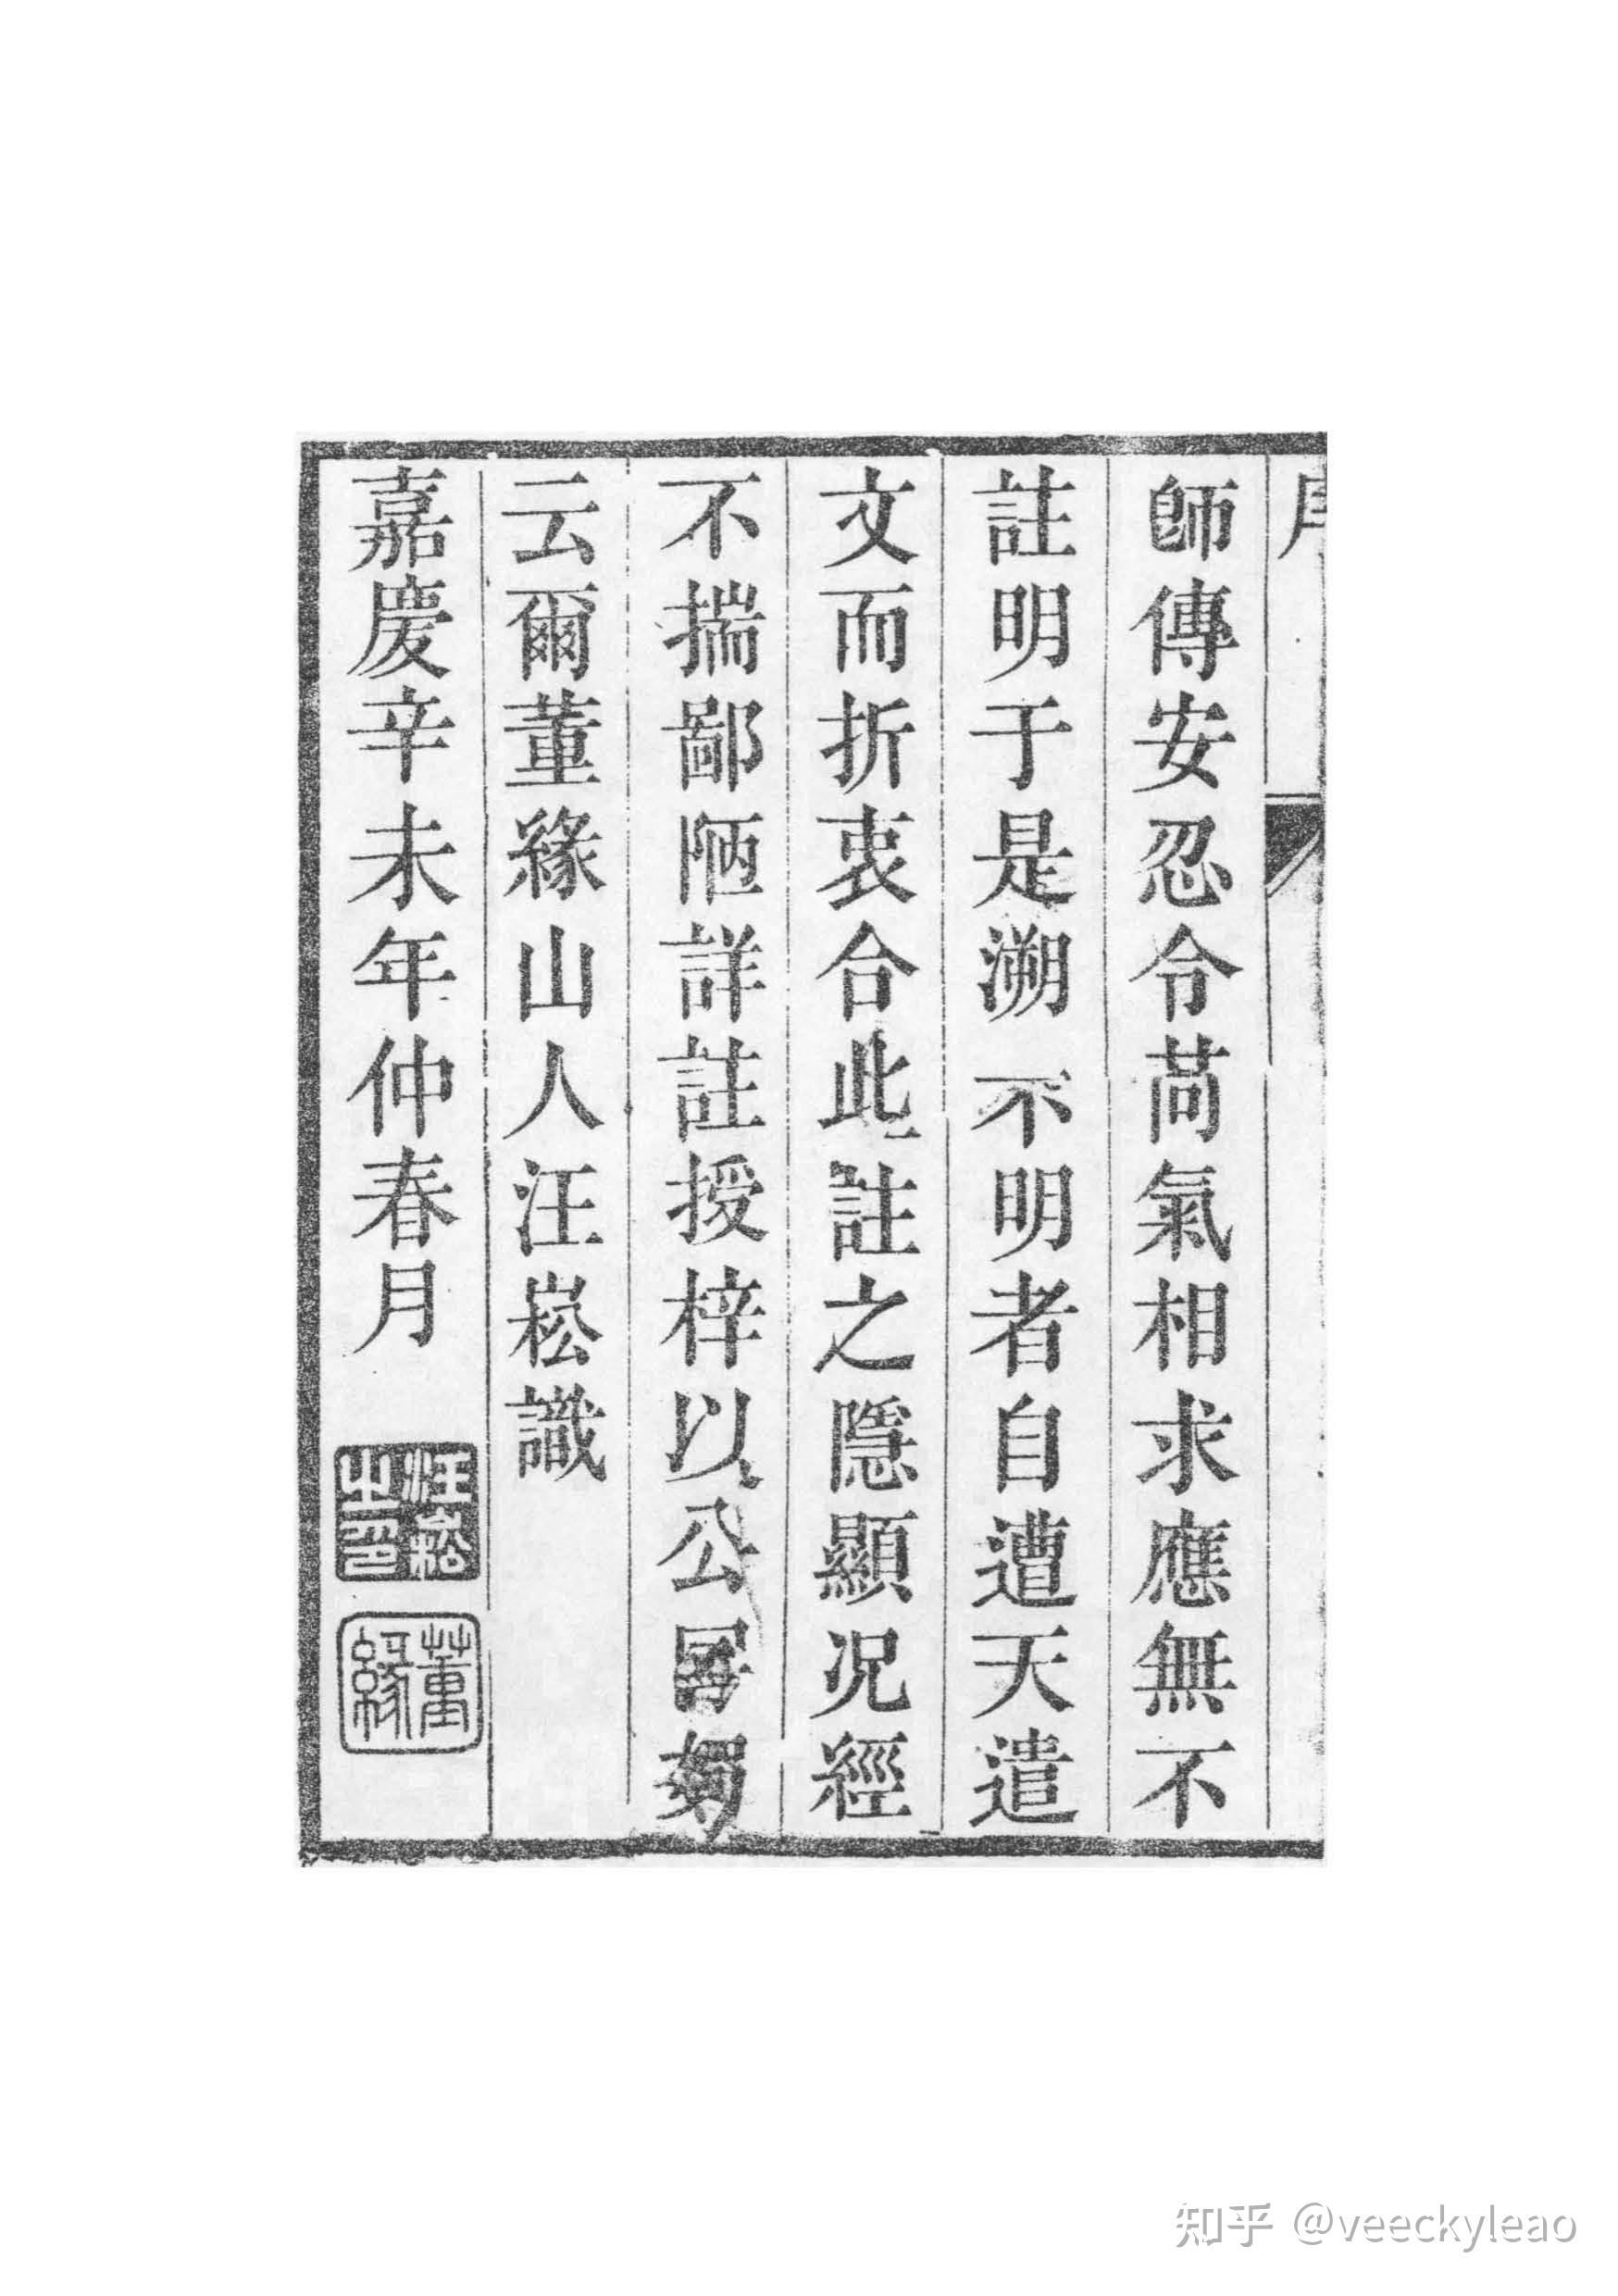 師傳安忍令苘氣相求應無不
註明于是溯不明者自遭天遣
文而折衷合此註之隱顯况經
不揣鄙陋詳註授梓以公
云爾董緣山人汪崧識
嘉慶辛未年仲春月
汪崧之印
董緣
知乎 @veeckyleao